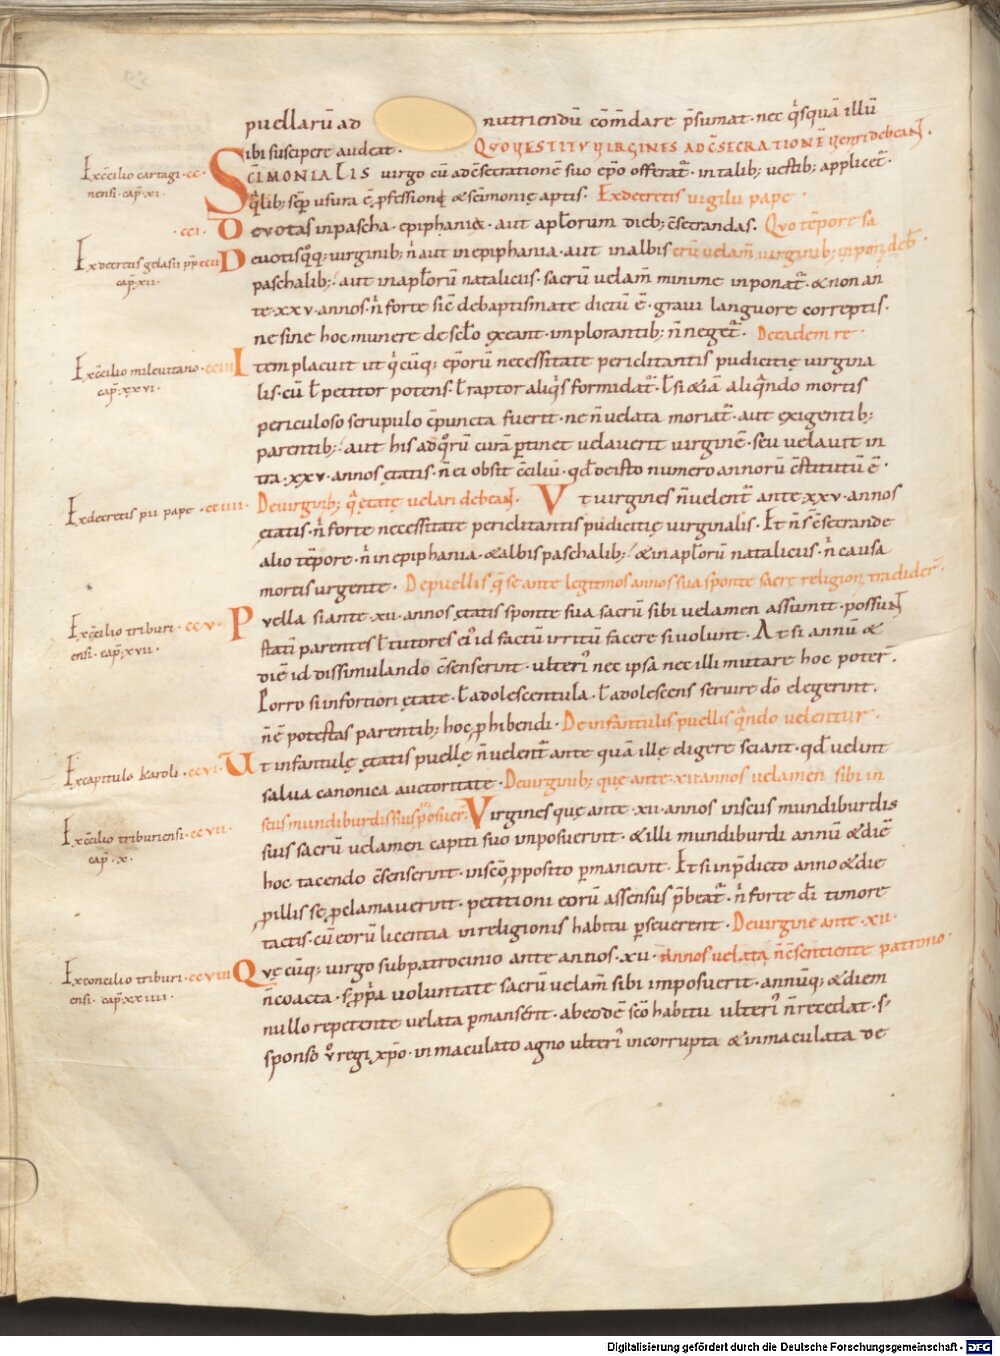 puellarū ad nutriendū cōmdare p̄sumat · nec q̓squā illū
sibi suscipere audeat · QVO VESTITV VIRGINES AD C̄SECRATIONĒ VENIRE debeaɴt .
Ex c̄cilio cartagi · cc · SCĪMONIALIS virgo cū ad c̄secrationē suo ep̄o offerat᷑ · in talib; uestib; applicet᷑ ·
nensi · cap̄ · xi ·
q̓lib; semp̄ usura ē p̄fessioni & scīmonię aptis · Ex decretis vigilii pape ·
· cci · Deuotas in pascha · epiphania · aut apl̄orum dieb; c̄secrandas · Quo tēpore sa
Ex decretis gelasii pp̄ ccii Deuotis q̊q; virginib; n̓ aut in epiphania · aut in albis crū uelam̄ virginib; inpon̄ deb̄ ·
cap̄ · xii ·
paschalib; · aut in apl̄orū nataliciis · sacrū uelam̄ minime inponat᷑ · & non an
te · xxv · annos · n̓ forte sic̄ de baptismate dictū ē · graui languore correptis ·
ne sine hoc munere de scl̄o exeant · implorantib; n̄ neget᷑ · De eadem re ·
Ex c̄cilio mileuitano · cciii Item placuit ut q̓cūq; ep̄orū necessitate periclitantis pudicitię virgina
cap̄ · xxvi ·
lis · cū ł petitor potens · ł raptor aliq̓s formidat᷑ · ł si &iā aliq̓ndo mortis
periculoso scrupulo c̄puncta fuerit · ne n̄ uelata moriat᷑ · aut exigentib;
parentib; · aut his ad q̊rū curā p̄tinet uelauerit uirginē · seu uelauit in
tra · xxv · annos ętatis · n̄ ei obsit c̄ciliū · qd̄ de isto numero annorū c̄stitutū ē ·
Ex decretis pii pape · cciiii · De uirginib; q̓ ętate uelari debeaɴt · Vt virgines n̄ uelent᷑ ante · xxv · annos
ętatis · n̓ forte necessitate periclitantis pudicitię virginalis · Et n̄ s̄ c̄secrande
alio tēpore · n̓ in epiphania · & albis paschalib; · & in apl̄orū nataliciis · n̓ causa
mortis urgente · De puellis q̨ se ante legitimos annos sua sponte sacre religioni tradider̄ ·
Ex c̄cilio triburi · ccv · Puella si ante · xii · annos ętatis sponte sua sacrū sibi uelamen assumit · possuɴt
ensi · cap̄ · xvii ·
statī parentes ł tutores ei᷒ id factū irritū facere si uolunt · At si annū &
diē id dissimulando c̄senserint · ulteri᷒ nec ipsa nec illi mutare hoc poter̄ ·
Porro si in fortiori ętate · ł adolescentula · ł adolescens seruire dō elegerint ·
n̄ ē potestas parentib; hoc p̱hibendi · De infantulis puellis q̓ndo uelentur ·
Ex capitula karoli · ccvi · Ut infantulę ętatis puellę n̄ uelent᷑ ante quā illę eligere sciant · qd̄ uelint
salua canonica auctoritate · De uirginib; quę ante · xii annos uelamen sibi in
Ex c̄cilio triburiensi · ccvii · sciis mundiburdis suis īposuer̄ · Virgines quę ante · xii · annos insciis mundiburdis
cap̄ · x ·
suis sacrū uelamen capiti suo imposuerint · & illi mundiburdi annū & diē
hoc tacendo c̄senserint · in scō p̱posito p̄maneant · Et si in p̄dicto anno & die
p̱ illis se p̱clamauerint · petitioni eorū assensus p̄beat᷑ · n̓ forte dī timore
tactis · cū eorū licentia in religionis habitu p̄seuerent · De uirgine ante · xii ·
Ex concilio triburi · ccviii Quęcūq; virgo sub patrocinio ante annos · xii · annos uelata n̄ c̄sentiente patrono ·
ensi · cap̄ · xxiiii ·
n̄ coacta · s; p̱pria uoluntate sacrū uelam̄ sibi imposuerit · annūq; & diem
nullo repetente uelata p̄manserit · ab eodē scō habitu ulteri᷒ n̄ recedat · s;
sponso ů regi xp̄o · in maculato agno ulteri᷒ incorrupta & inmaculata de
Digitalisierung gefördert durch die Deutsche Forschungsgemeinschaft - DFG